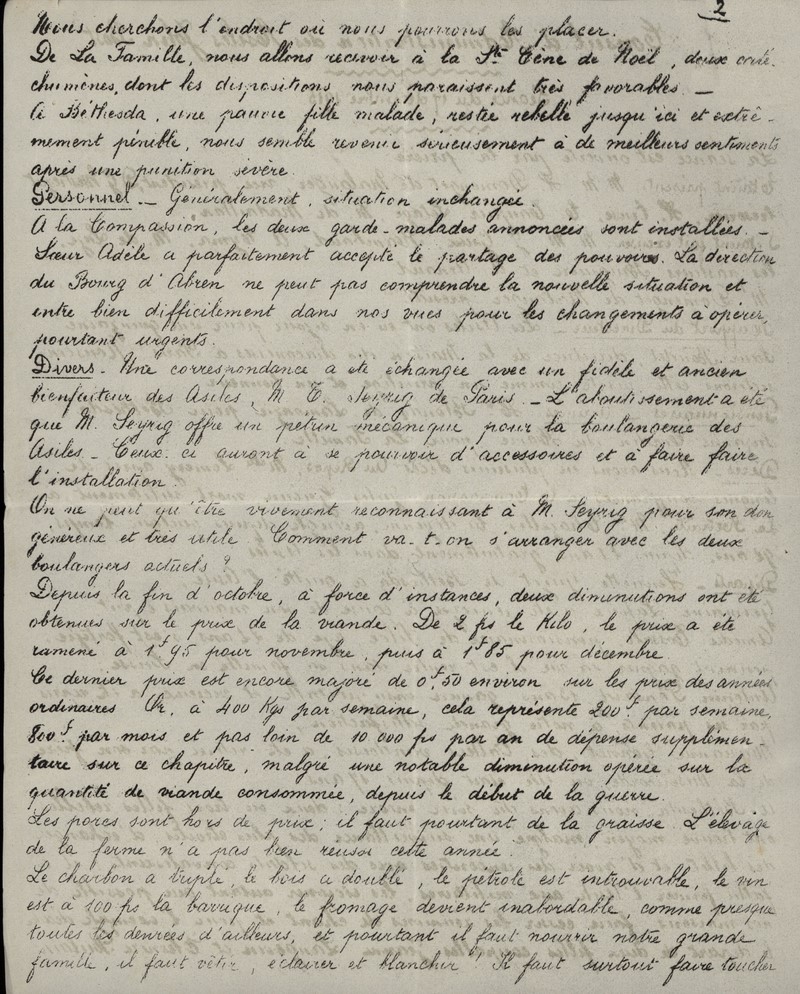 2
Nous cherchons l'endroit où nous pourrons les placer.
De La Famille, nous allons recevoir à la Ste Cène de Noël, deux caté-
chumènes, dont les dispositions nous paraissent très favorables. —
A Béthesda, une pauvre fille malade, restée rebelle jusqu'ici et extrê-
mement pénible, nous semble revenir sérieusement à de meilleurs sentiments
après une punition sévère.
Personnel. — Généralement, situation inchangée.
A la Compassion, les deux garde-malades annoncées sont installées. —
Sœur Adèle a parfaitement accepté le partage des pouvoirs. La direction
du Bourg d'Abren ne peut pas comprendre la nouvelle situation et
entre bien difficilement dans nos vues pour les changements à opérer,
pourtant urgents.
Divers - Une correspondance a été échangée avec un fidèle et ancien
bienfaiteur des Asiles, M. T. Seyrig de Paris. — L'aboutissement a été
que M. Seyrig offre un pétrin mécanique pour la boulangerie des
Asiles - Ceux-ci auront à se pourvoir d'accessoires et à faire faire
l'installation.
On ne peut qu'être vivement reconnaissant à M. Seyrig pour son don
généreux et très utile Comment va-t-on s'arranger avec les deux
boulangers actuels ?
Depuis la fin d'octobre, à force d'instances, deux diminutions ont été
obtenues sur le prix de la viande. De 2 frs le Kilo, le prix a été
ramené à 1f95 pour novembre, puis à 1f85 pour décembre
Ce dernier prix est encore majoré de 0f,50 environ sur les prix des années
ordinaires Or, à 400 Kgs par semaine, cela représente 200f. par semaine,
800f. par mois et pas loin de 10 000 frs par an de dépense supplémen-
taire sur ce chapitre, malgré une notable diminution opérée sur la
quantité de viande consommée, depuis le début de la guerre.
Les porcs sont hors de prix ; il faut pourtant de la graisse. L'élevage
de la ferme n'a pas bien réussi cette année.
Le charbon a triplé, le bois a doublé, le pétrole est introuvable, le vin
est à 100 frs la barrique, le fromage devient inabordable, comme presque
toutes les denrées d'ailleurs, et pourtant il faut nourrir notre grande
famille, il faut vêtir, éclairer et blanchir ! Il faut surtout faire toucher